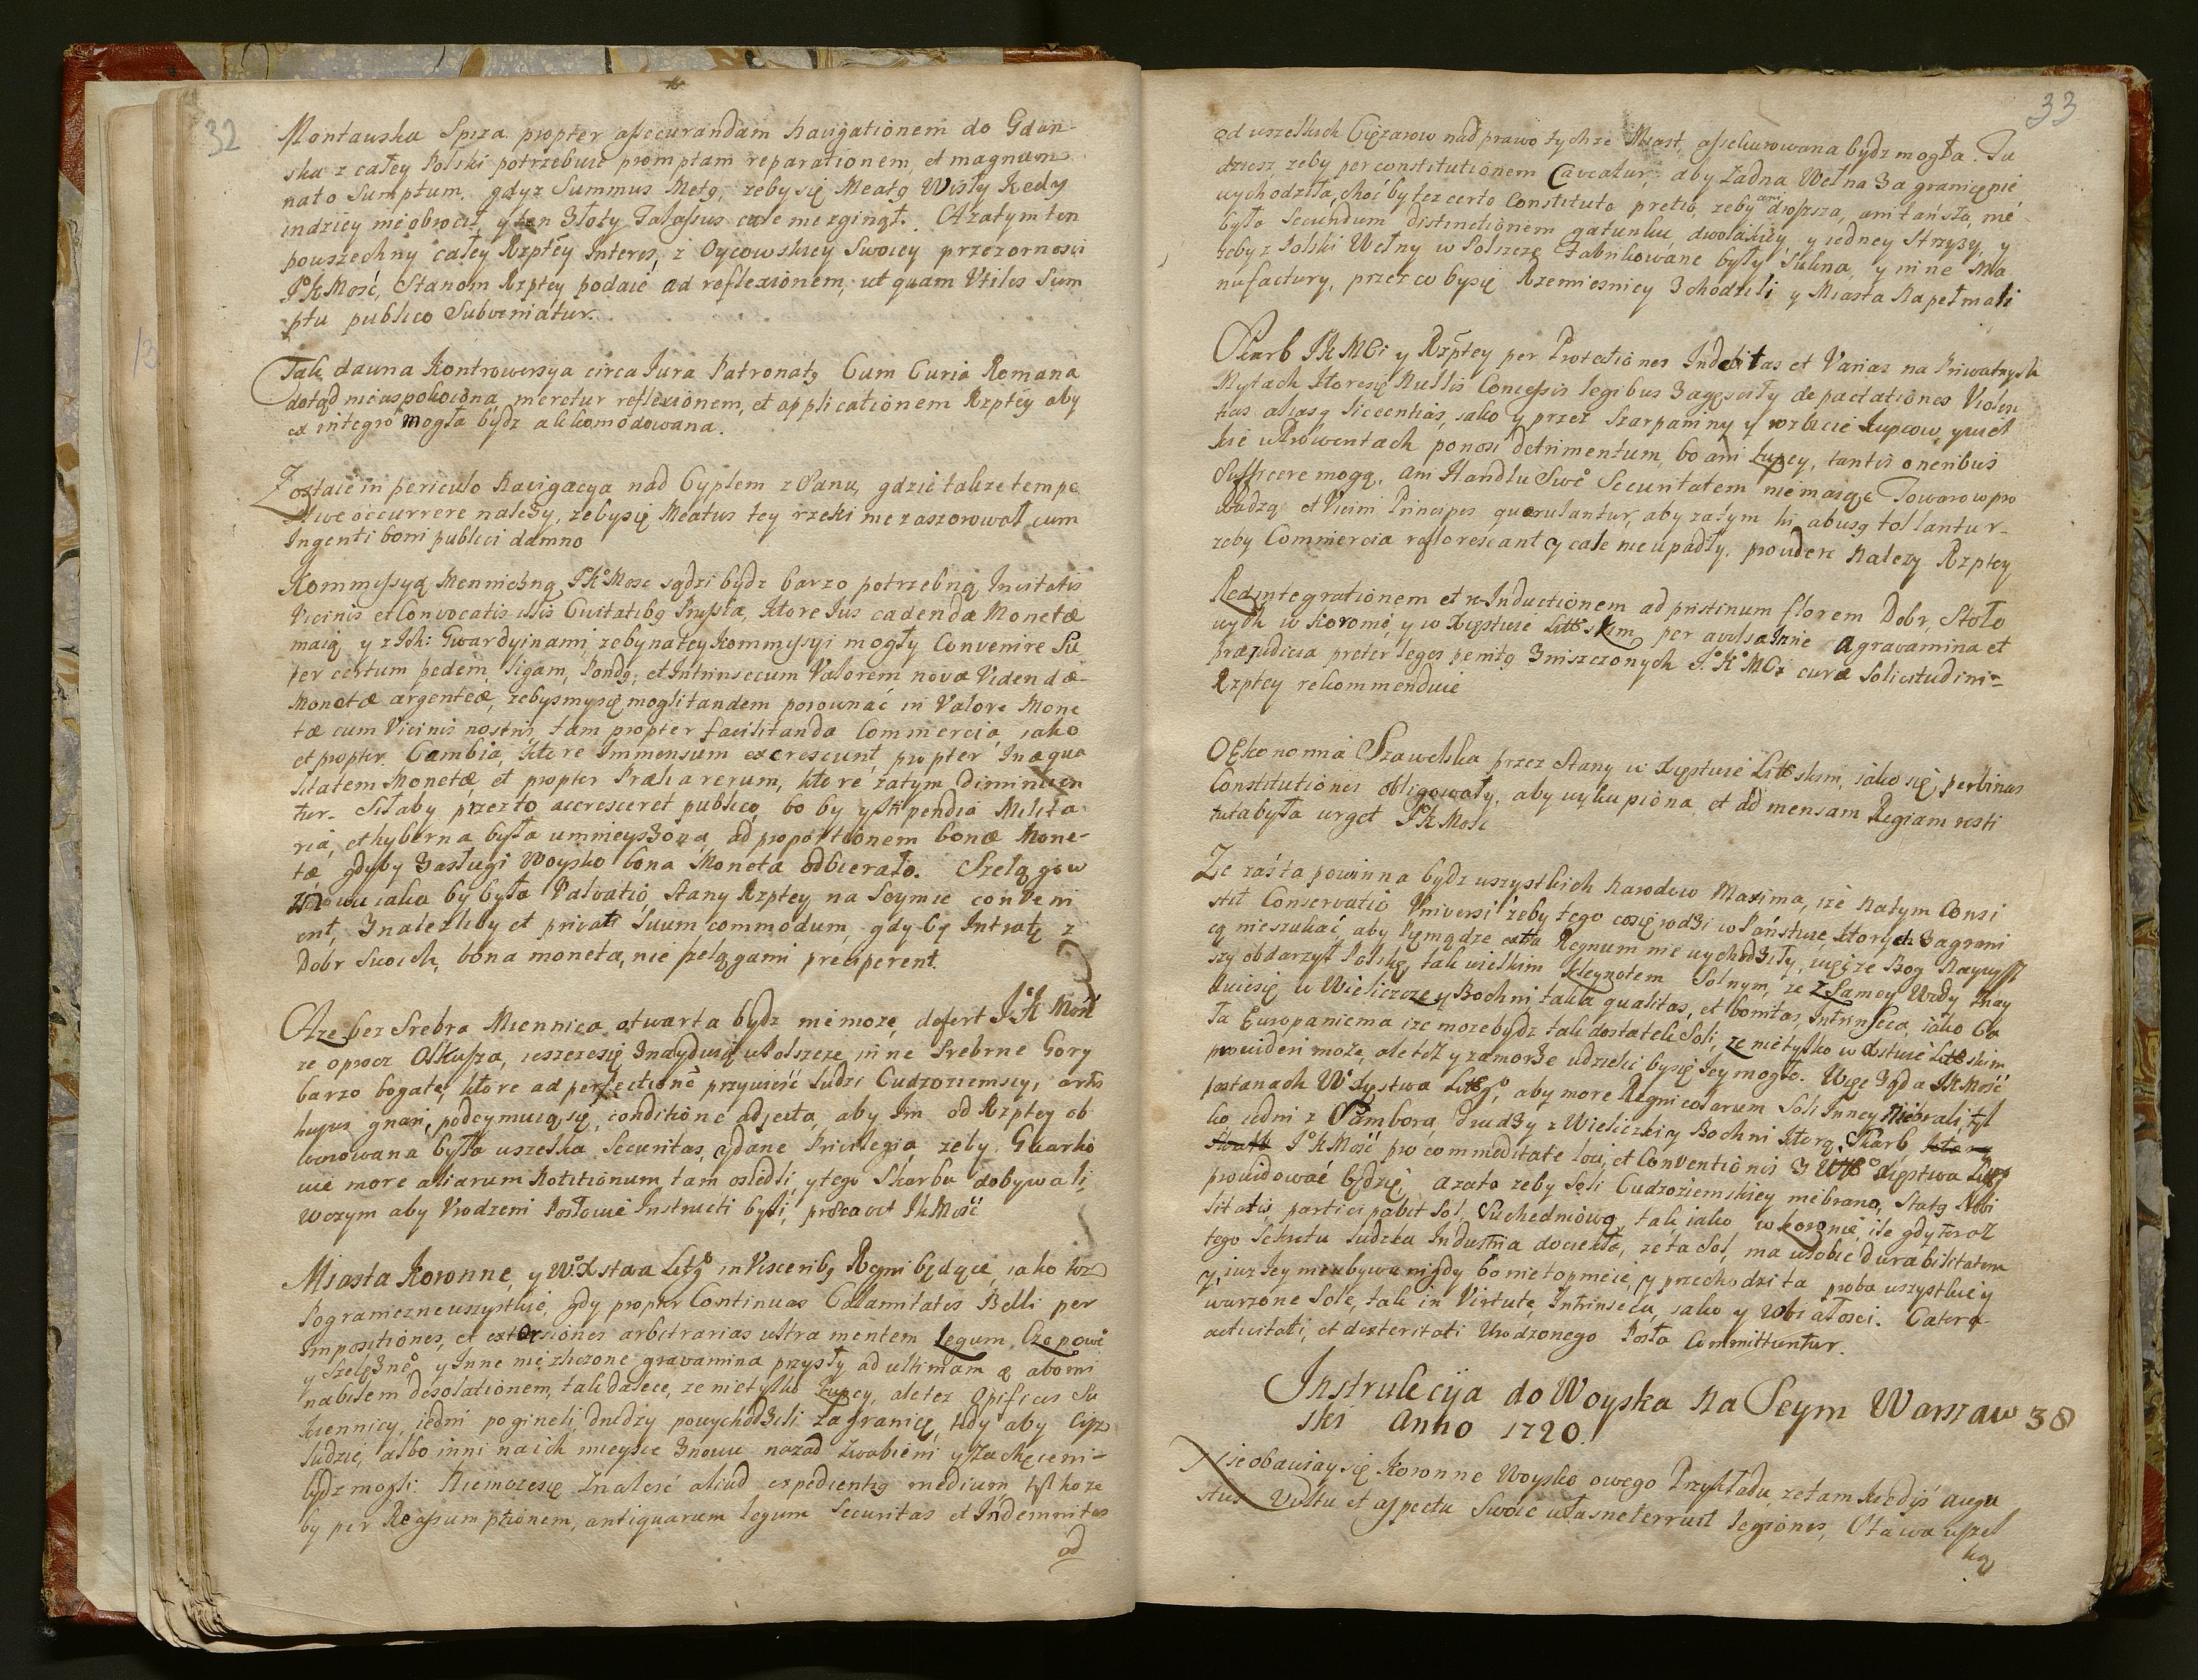 32
Montauska Spiza propter assecurandam Navigationem do Gdan-
ska z całey Polski potrzebuie promptam reparationem, et magnum
nato Sumptum, gdyz Summus Metus, zeby się Meatus Wisły kedy
indziey nie obrocił, y ten Złoty Talassus cale nie zginął. A zatym ten
powszechny całey Rzptey Interes, z Oycowskiey Swoiey przezornosci
JKMosć, Stanom Rzptey podaie ad reflexionem, ut quam Utiles Sum
ptu publico Subveniatur.
Tak dawna Kontrowersya circa Jura Patronatus Cum Curia Romana
dotąd nieaspokoiona, meretur reflexionem, et applicationem Rzptey aby
ex integro mogła bydz akkomodowana.
Zostaie in periculo Navigacya nad Cyplem z Sanu, gdzie takze tempe
stive occurrere nalezy, zeby się Meatus tey rzeki nie zaszorował cum
Ingenti boni publici damno
Kommissyą Menniczną JKMosc sądzi bydz barzo potrzebną Invitatis
Vicinis et Convocatis illis Civitatibus Prussiæ, ktore Jus cadendæ Monetæ
maią y z Ich: Gwardyinami, zeby na tey Kommissyi mogły Convenire Su
per certum pedem, ligam, Pondus, et Intrinsecum Valorem novæ Videndæ-
Monetæ argenteæ, zebysmy się mogli tandem porownać in Valore Mone
tæ cum Vicinis nostris, tam propter facilitanda Commercia, iako
et propter Cambia, ktore Immensum excrescunt, propter Inæqua
litatem Monetæ, et propter Prætia rerum, ktore zatym diminuen
tur. Siłaby przezto accresceret publico, bo by y Stipendia Milita
ria, et hyberna była umnieyszona, ad proportionem bonæ Mone-
tæ, gdyby Zasługi Woysko bona Moneta odbierało. Szelągow
znowu iaka by była Valvatio, Stany Rzptey na Seymie conveni
ent, Znalezliby et privati Suum commodum, gdy by Intratę z
Dobr Swoich, bona moneta, nie szelągami preciperent.
A ze bez Srebra Mennica otwarta bydz niemoze, defert JK Mość
ze oprocz Olkusza, ieszcze się Znayduią w Polszcze inne Srebrne Gory
barzo bogate, ktore ad perfectionē przywieść ludzi Cudzoziemscy, artis
hujus gnari, podeymuią się, conditione adjecta, aby Im od Rzptey ob
warowana była wszelka Securitas, y dane Privilegia, zeby Gwarko
wie more aliarum Notitionum tam osiedli, y tego Skarbu dobywali,
w czym aby Urodzeni Posłowie Instructi byli, præcavet JKMość
Miasta Koronne, y W.Xstwa Littgo in Visceribus Regni będące, iako też
Pograniczne wszystkie, gdy propter Continuas Calamitates Belli per
Impositiones, et extorsiones arbitrarias ultra mentem Legum, Czopowe
y Szelęzne, y Inne niezliczone gravamina przyszły ad ultimam et abomi
nabilem desolationem, tak dalece, ze nie tylko Kupcy, ale tez Opifices Su
kiennicy, iedni pogineli, drudzy powychodzili za granicę, tedy aby Ciz
ludzie, albo inni na ich mieysce znowu nazad zwabieni y Zachęceni-
bydz mogli. Niemoze się Znalesć aliud expedientius medium, tylko ze
by per Reassumptionem, antiquarum legum Securitas et Indemnitas
od
33
od wszelkich Cięzarow nad prawo tychze Miast, assekurowana bydz mogła. Tu
dziesz, zeby per constitutionem Caveatur, aby Zadna Wełna Za granicę nie
wychodziła, choćby tez certo Constituto pretio, zeby ani drozsza, ani tańsza, nie
była Secundum distinctionem gatunku, dwoiakiey, y iedney Strzyzy, y
zeby z Polski Wełny w Polszcze Fabrikowane były Sukna, y inne Ma
nufactury, przez co by się Rzemiesnicy Zchodzili, y Miasta Napełniali
Skarb JKMCi y Rzptey per Protectiones Indebitas et Varias na Priwatnych
Mytach ktore się Nullis Concessis legibus Zagęsciły depactationes Violen
tias aliasq licentias, iako y przez Szarpaniny y rozbicie kupcow, y wiel
kie w Prowentach ponosi detrimentum, bo ani kupcy, tantis oneribus
Sufficere mogą, ani Handlu Swo Securitatem nie maiąc Towarow pro
wadzą et Vicini Principes querulantur, aby zatym hi abusus tollantur-
zeby Commercia reflorescant y cale nie upadły, providere Nalezy Rzptey
Redintegrationem et re-Inductionem ad pristinum florem Dobr, Stoło
wych w Koronie, y w Xięstwie Litt skim per avulsa Inne Agravamina et
præjudicia preter leges penitus Zniszczonych J.K.MCi curæ Solicitudini-
Rzptey rekommenduie
OEkonomia Szawelska przez Stany w Xięstwie Litt skim, iako się per binas
Constitutiones obligowały, aby wykupiona, et ad mensam Regiam resti
tuta była urget JKMosc
Ze zaś ta powinna bydz wszystkich Narodow Maxima, iże Natym Consi
stit Conservatio Universi zeby tego co się rodzi w Państwie, ktorych Zagrani
cą nieszukać, aby Pieniądze extra Regnum nie wychodziły, więc ze Bog Naywyz
szy obdarzył Polskę, tak wielkim kleynotem Solnym, ze z Samey Wody Znay
duie się w Wieliczcze y Bochni taka qualitas, et bonitas Intrinseca, iako Ca
Ta Europa niema ize moze bydz tak dostatek Soli, ze nietylko w Xstwie Litt skim
provideri może, ale też y za morze udzielić by się Jey mogło. Więc Ząda JKMość
postanach W Xięstwa Littgo, aby more Regnicolarum Soli Inney Niebrali, tyl
ko iedni z Sambora, drudzy z Wieliczki y Bochni ktorą, Skarb
J K Mość pro commoditate loci, et Conventionis Xięstwa Littgo
providować będzie, a zato zeby Soli Cudzoziemskiey nie brano, Status Nobi
litatis participabit Sol, Suchedniową, tak iako w koronie, ile gdy teraz
tego Sekretu ludzka Industria dociekła, ze ta Sol, ma w sobie durabilitatem
y, iuz Jey nie ubywa nigdy bo nie topnieie, y przechodzi ta proba wszystkie y
warzone Sole, tak in Virtute Intrinseca, iako y w białosci. Cætera-
activitati, et dexteritati Urodzonego Posła Committuntur.
Instrukcija do Woyska Na Seym Warszaw 38
ski Anno 1720.
Nieobawiay się koronne Woysko owego Przykładu, ze tam kiedyś Augu
stus Vultu et aspectu Swoie własne terruit legiones, Stawa wszel
ką